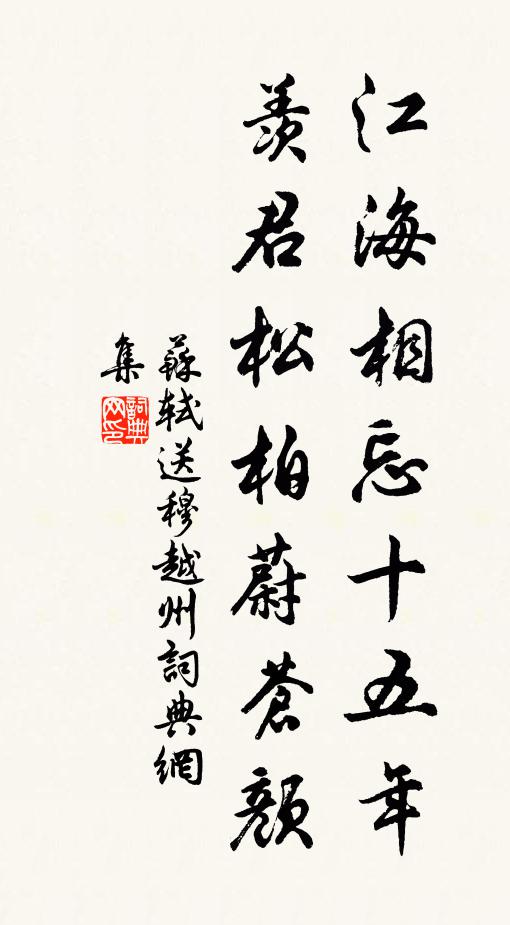 江海相忘十五年
羨君松柏蔚蒼顏
蘇軾送穆越州詞典網
集
詞典
网印